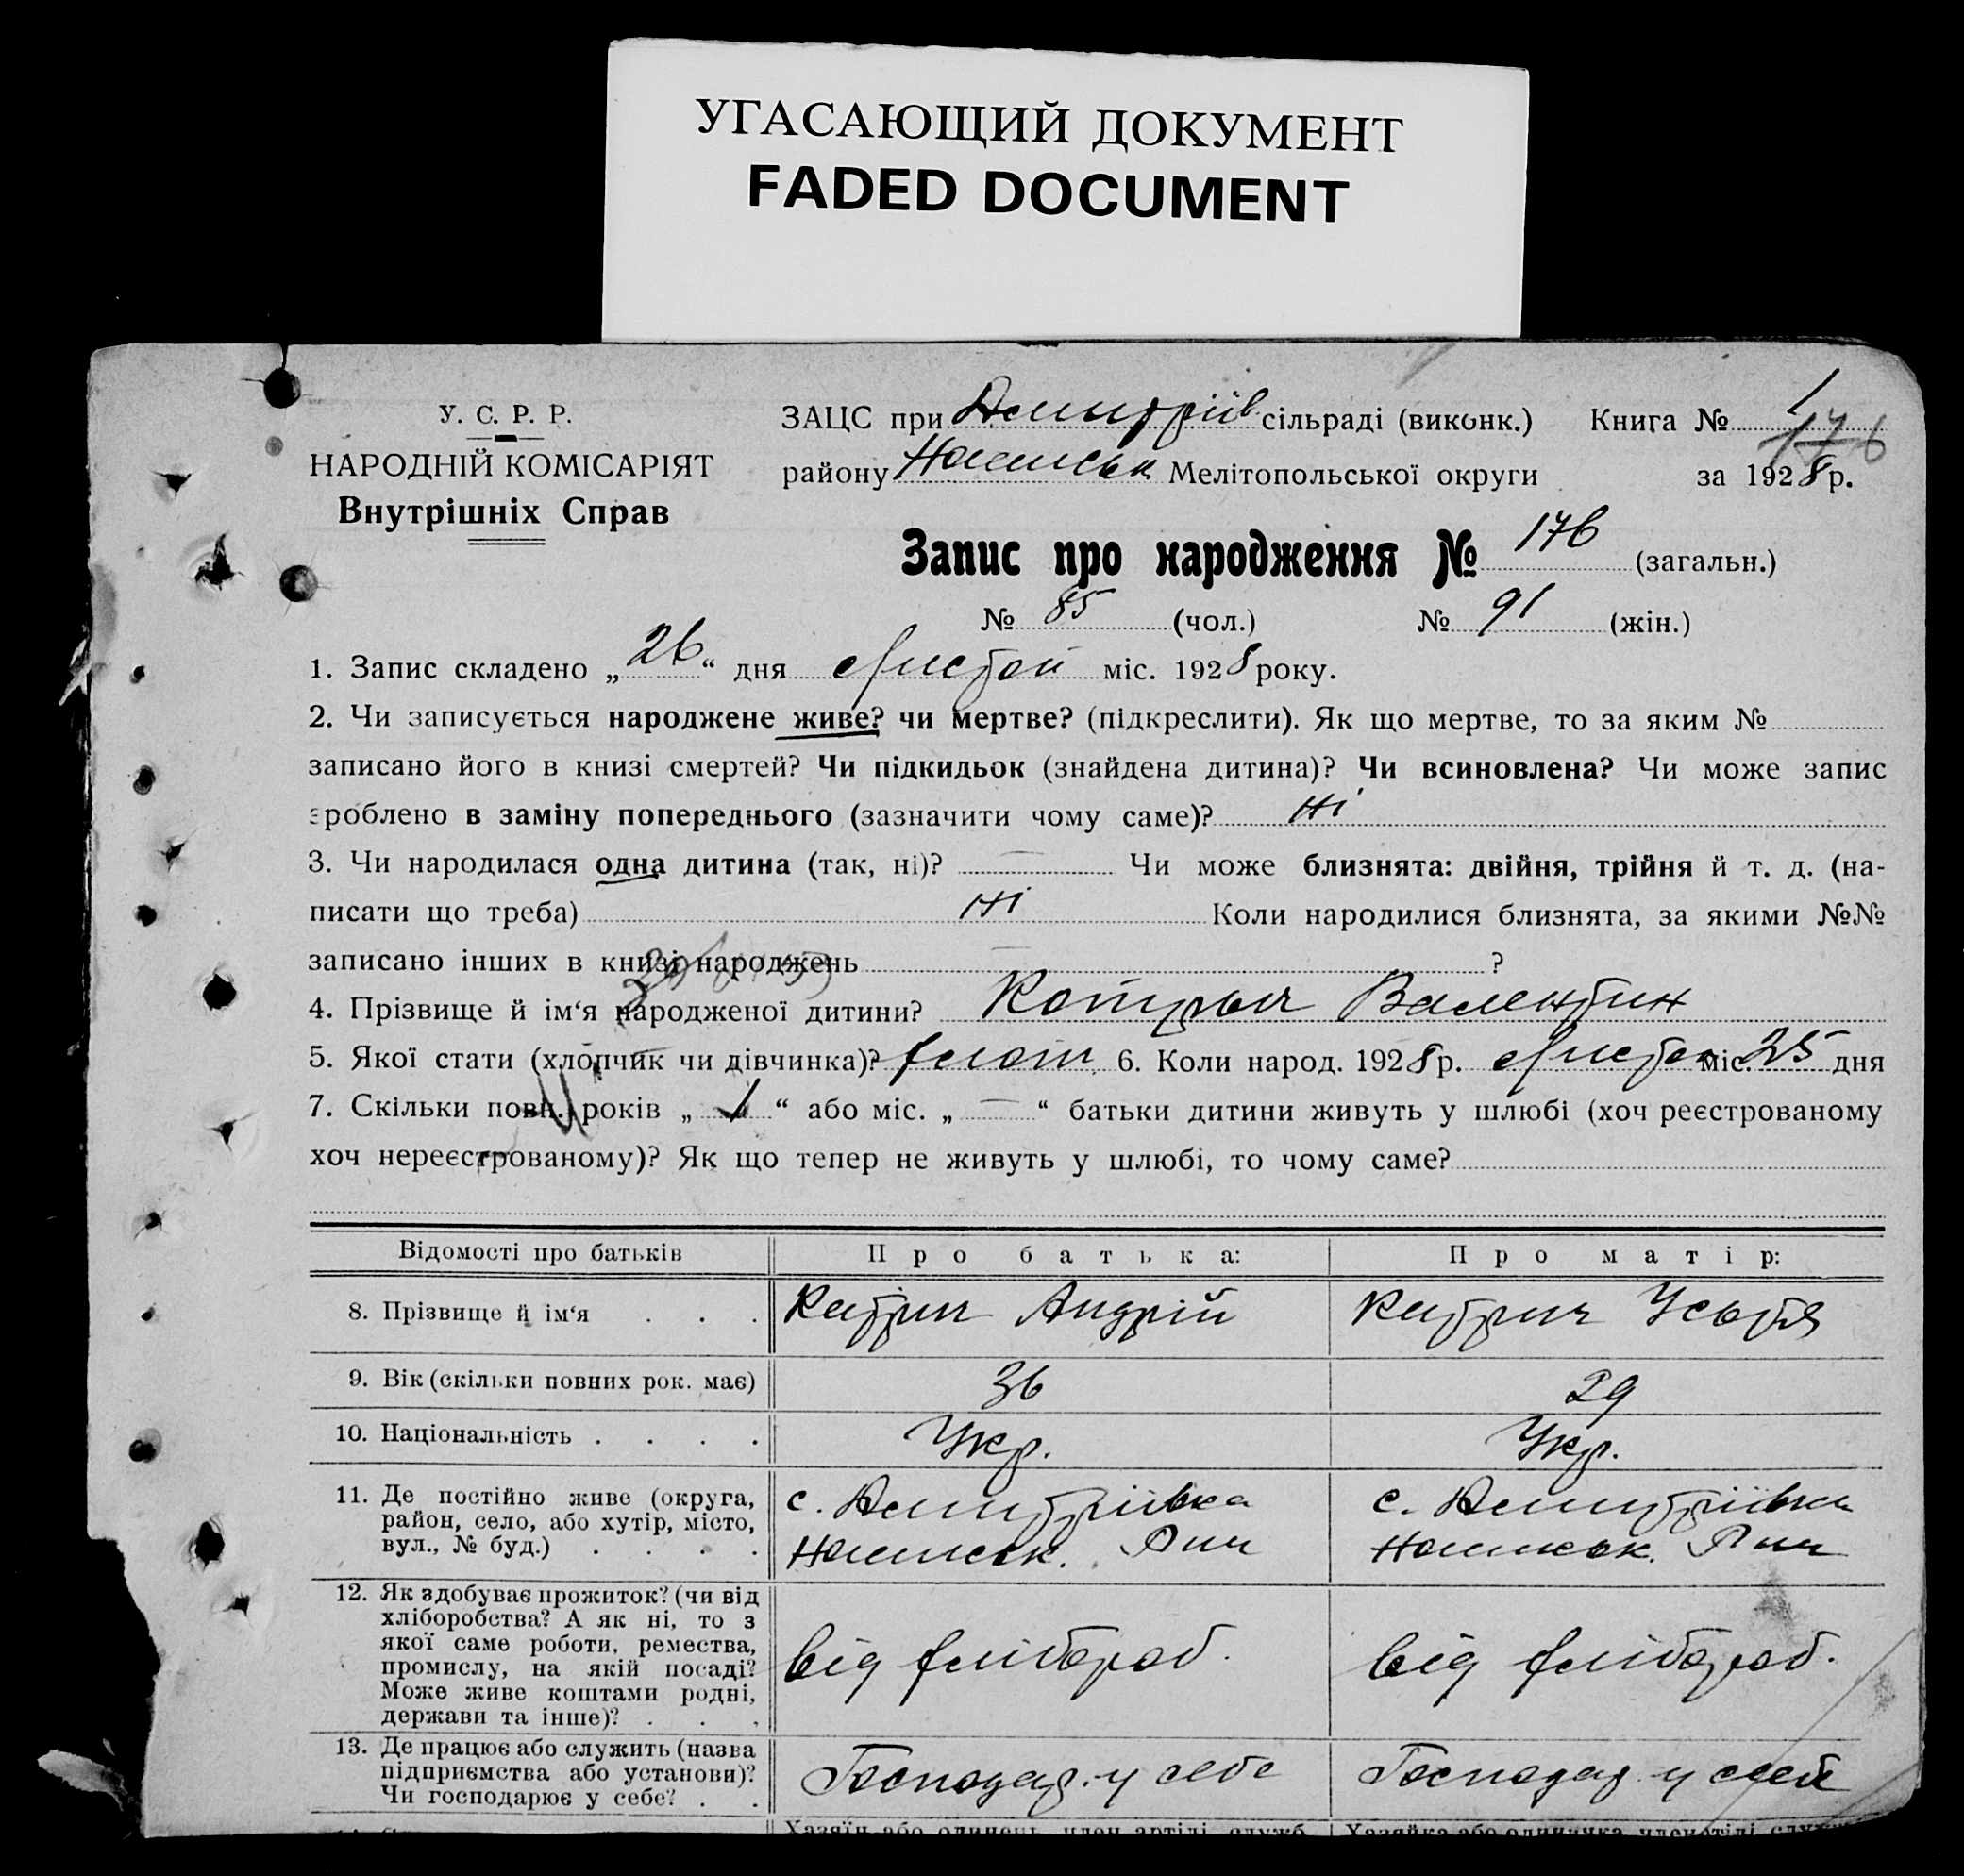 УГАСАЮЩИЙ ДОКУМЕНТ
FADED DOCUMENT
У. С. Р. Р.
НАРОДНІЙ КОМІСАРІЯТ
Внутрішніх Справ
ЗАЦС при Дмитрів. сільраді (виконк.) Книга № 1
176
району Мелітопольської округи за 1928 р.
Запис про народження № 176 (загальн.)
№ 85 (чол.) № 91 (жін.)
1. Запис складено „ 26 “ дня Листоп міс. 1928 року.
2. Чи записується народжене живе? чи мертве? (підкреслити). Як що мертве, то за яким №
записано його в книзі смертей? Чи підкидьок (знайдена дитина)? Чи всиновлена? Чи може запис
зроблено в заміну попереднього (зазначити чому саме)? Ні
3. Чи народилася одна дитина (так, ні)? — Чи може близнята: двійня, трійня й т. д. (на-
писати що треба) Ні Коли народилися близнята, за якими №№
записано інших в книзі народжень — ?
4. Прізвище й ім‘я народженої дитини? Котрич Валентин
5. Якої стати (хлопчик чи дівчинка)? хлоп. 6. Коли народ. 1928 р. Листоп міс. 25 дня
7. Скільки повн. років „ “ або міс. „ — “ батьки дитини живуть у шлюбі (хоч реєстрованому
хоч нереєстрованому)? Як що тепер не живуть у шлюбі, то чому саме?
Відомості про батьків Про батька: Про матір:
8. Прізвище й ім‘я . . . Катрич Андрій Катрич Устя
9. Вік (скільки повних рок. має) 36 29
10. Національність . . . . Укр. Укр.
11. Де постійно живе (округа, с. Дмитріівка с. Дмитріівка
район, село, або хутір, місто,
вул., № буд.) . . . .
12. Як здобуває прожиток? (чи від
хліборобства? А як ні, то з
якої саме роботи, ремества, від хлібороб. від хлібороб.
промислу, на якій посаді?
Може живе коштами родні,
держави та інше)? . . .
13. Де працює або служить (назва
підприємства або установи)? Господар. у себе Господар у себе
Чи господарює у себе? . .
Хазяїн або одинець, член артілі, служб. Хазяйка або одиничка, член артілі, служ